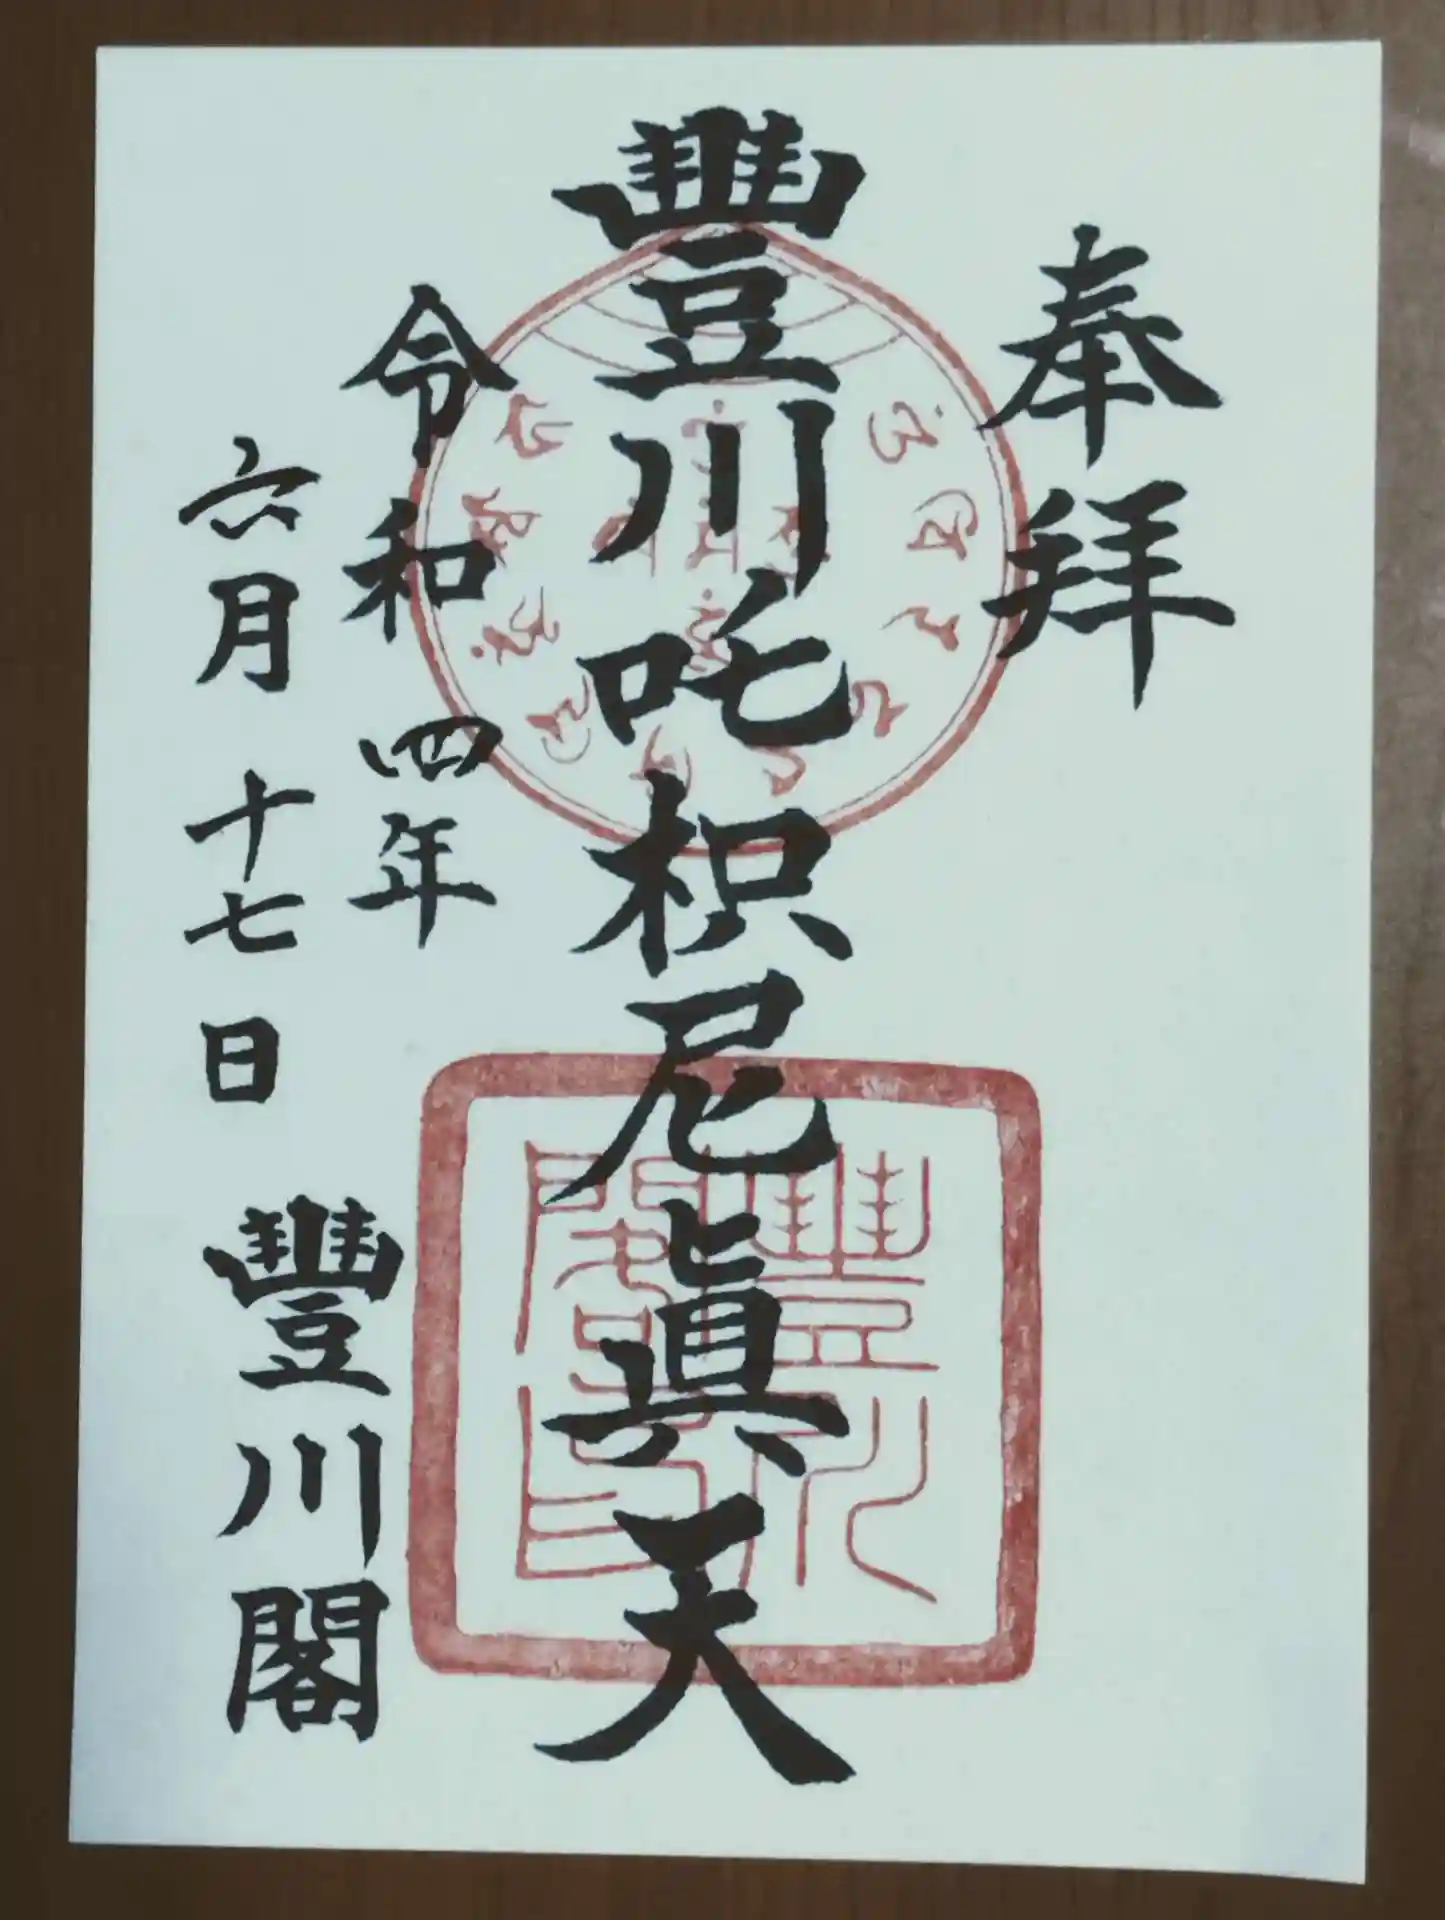 奉拜
豐川吒枳尼眞天
令和四年
六月十七日
豐川閣
豐川閣印